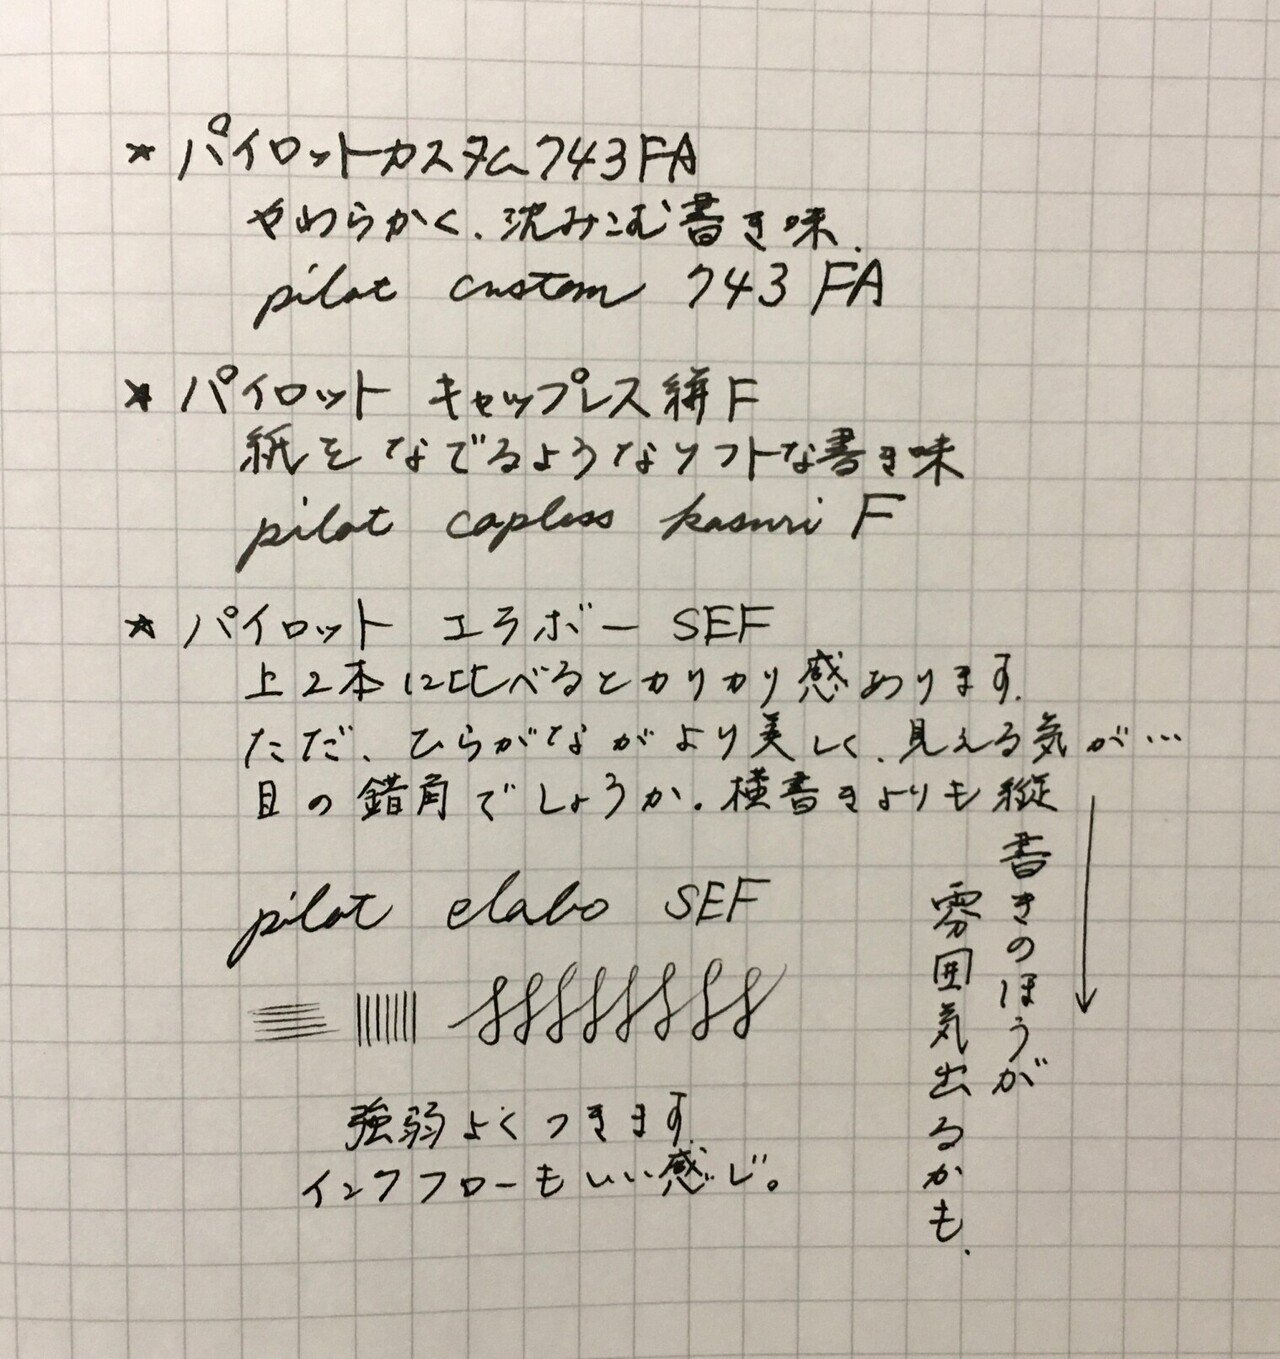 ★ パイロットカスタム743FA
やわらかく、沈みこむ書き味.
pilot custom 743 FA
★ パイロット キャップレス絣F
紙をなでるようなソフトな書き味
pilot capless kasuri F
★ パイロット エラボー SEF
上2本に比べるとカリカリ感あります.
ただ、ひらがながより美しく、見える気が…
目の錯角でしょうか.横書きよりも縦
書きのほうが
雰囲気出るかも.
pilot elabo SEF
強弱よくつきます.
インクフローもいい感じ。